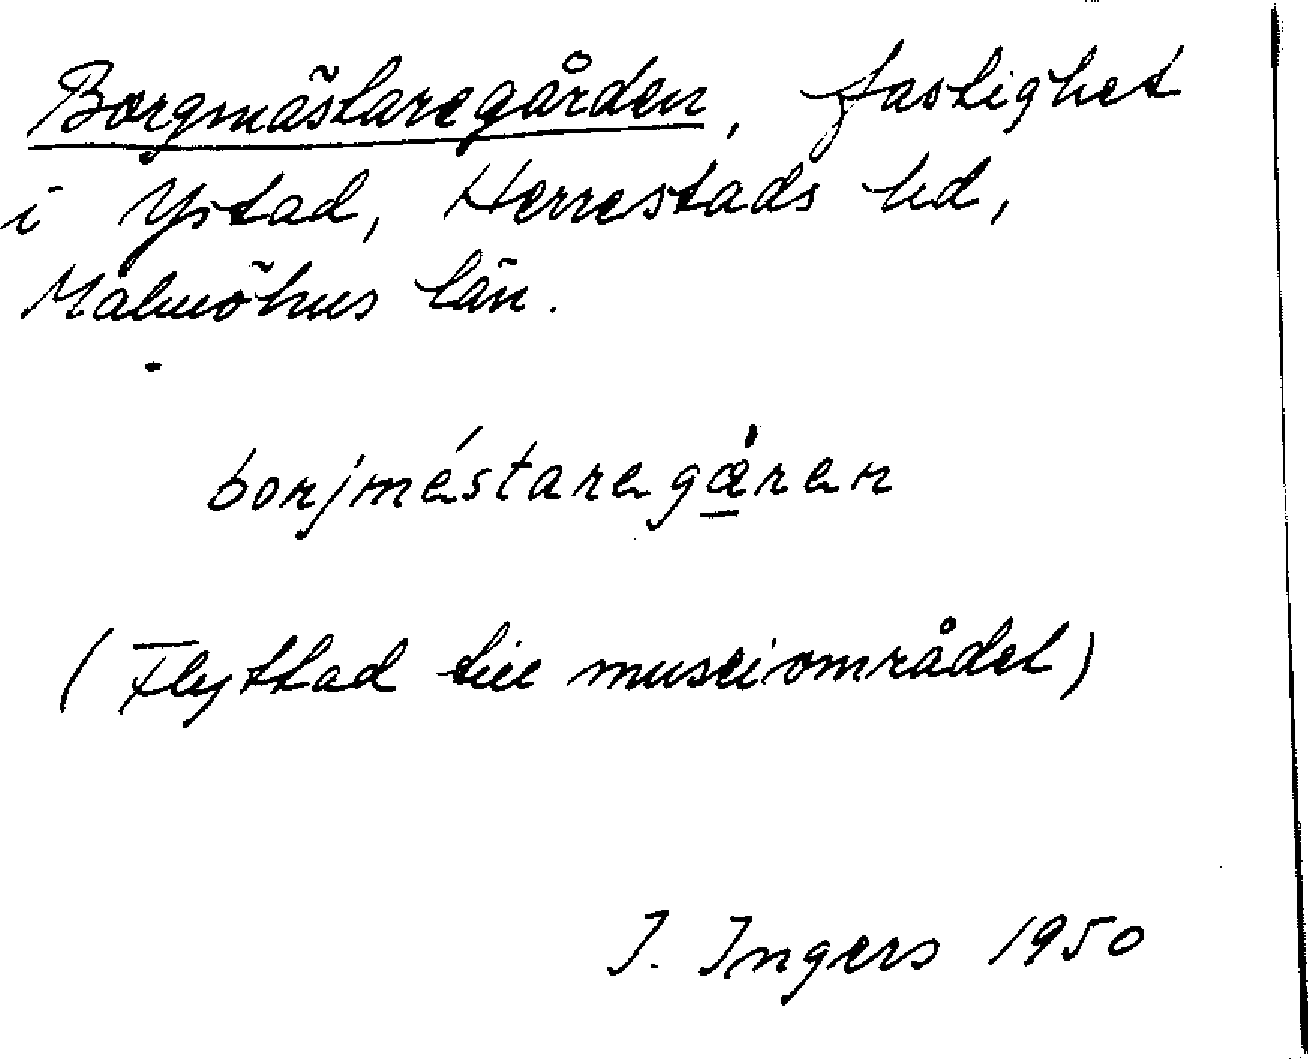 Borgmästaregården, fastighet
i Ystad, Herrestads hd,
Malmöhus län.
borjméstaregǽren
(Flyttad till museiområdet)
I. Ingers 1950